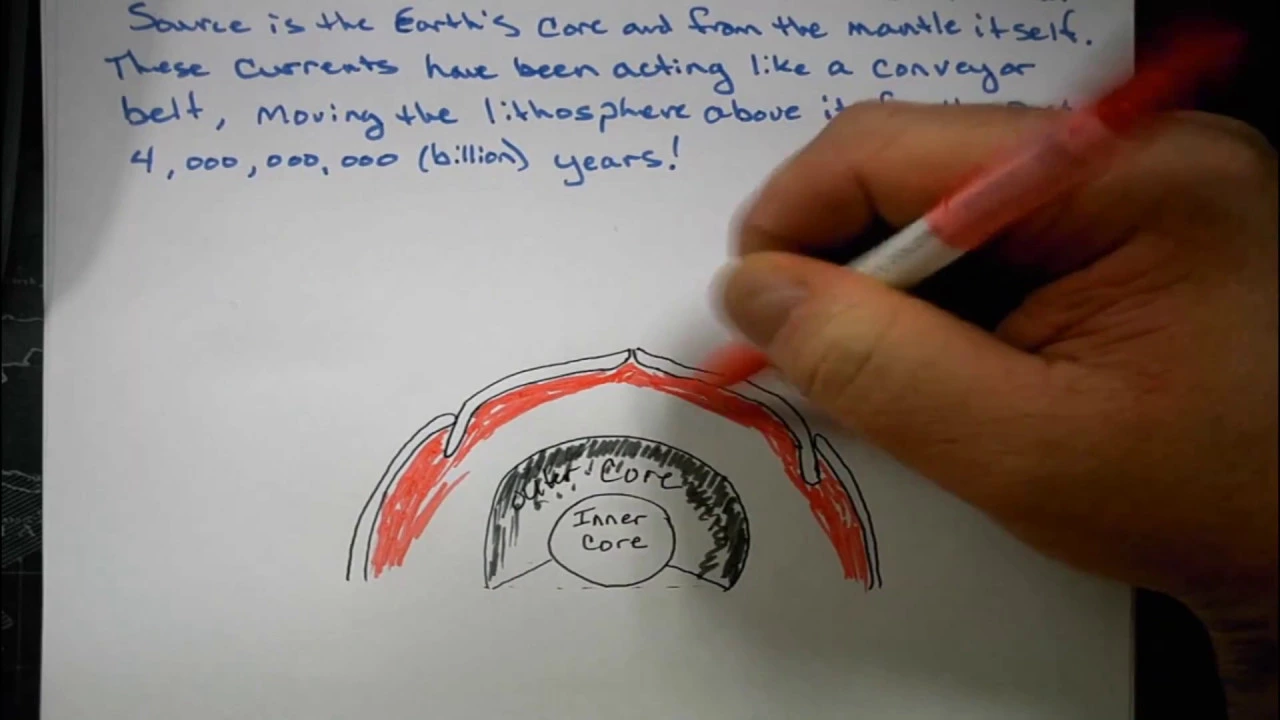 Source is the Earth's core and from the mantle itself.
These currents have been acting like a conveyor
belt, moving the lithosphere above it
4,000,000,000 (billion) years!
Outer Core
Inner
Core